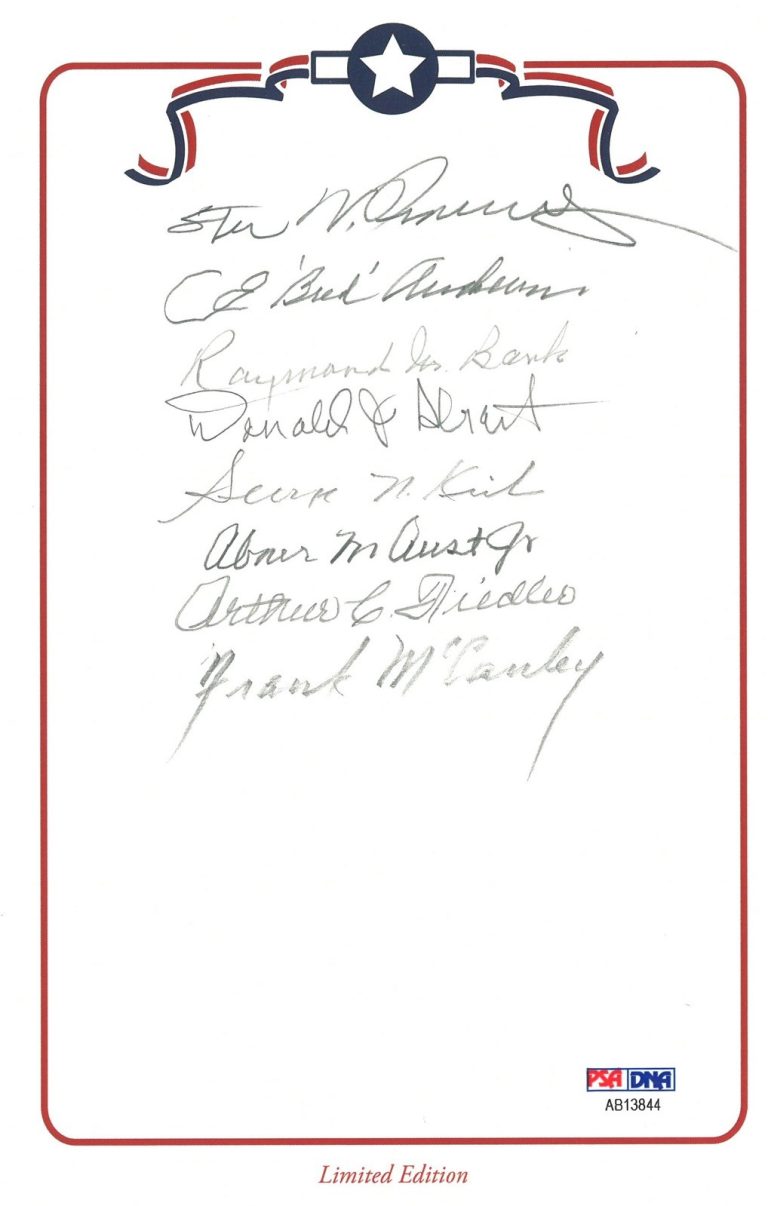 Stan W.
CE 'Bud' Anderson
Raymond M. Bank
Donald J
George N. Kirk
Abner M Aust Jr
Arthur C. Fiedler
Frank McCauley
PSA DNA
AB13844
Limited Edition